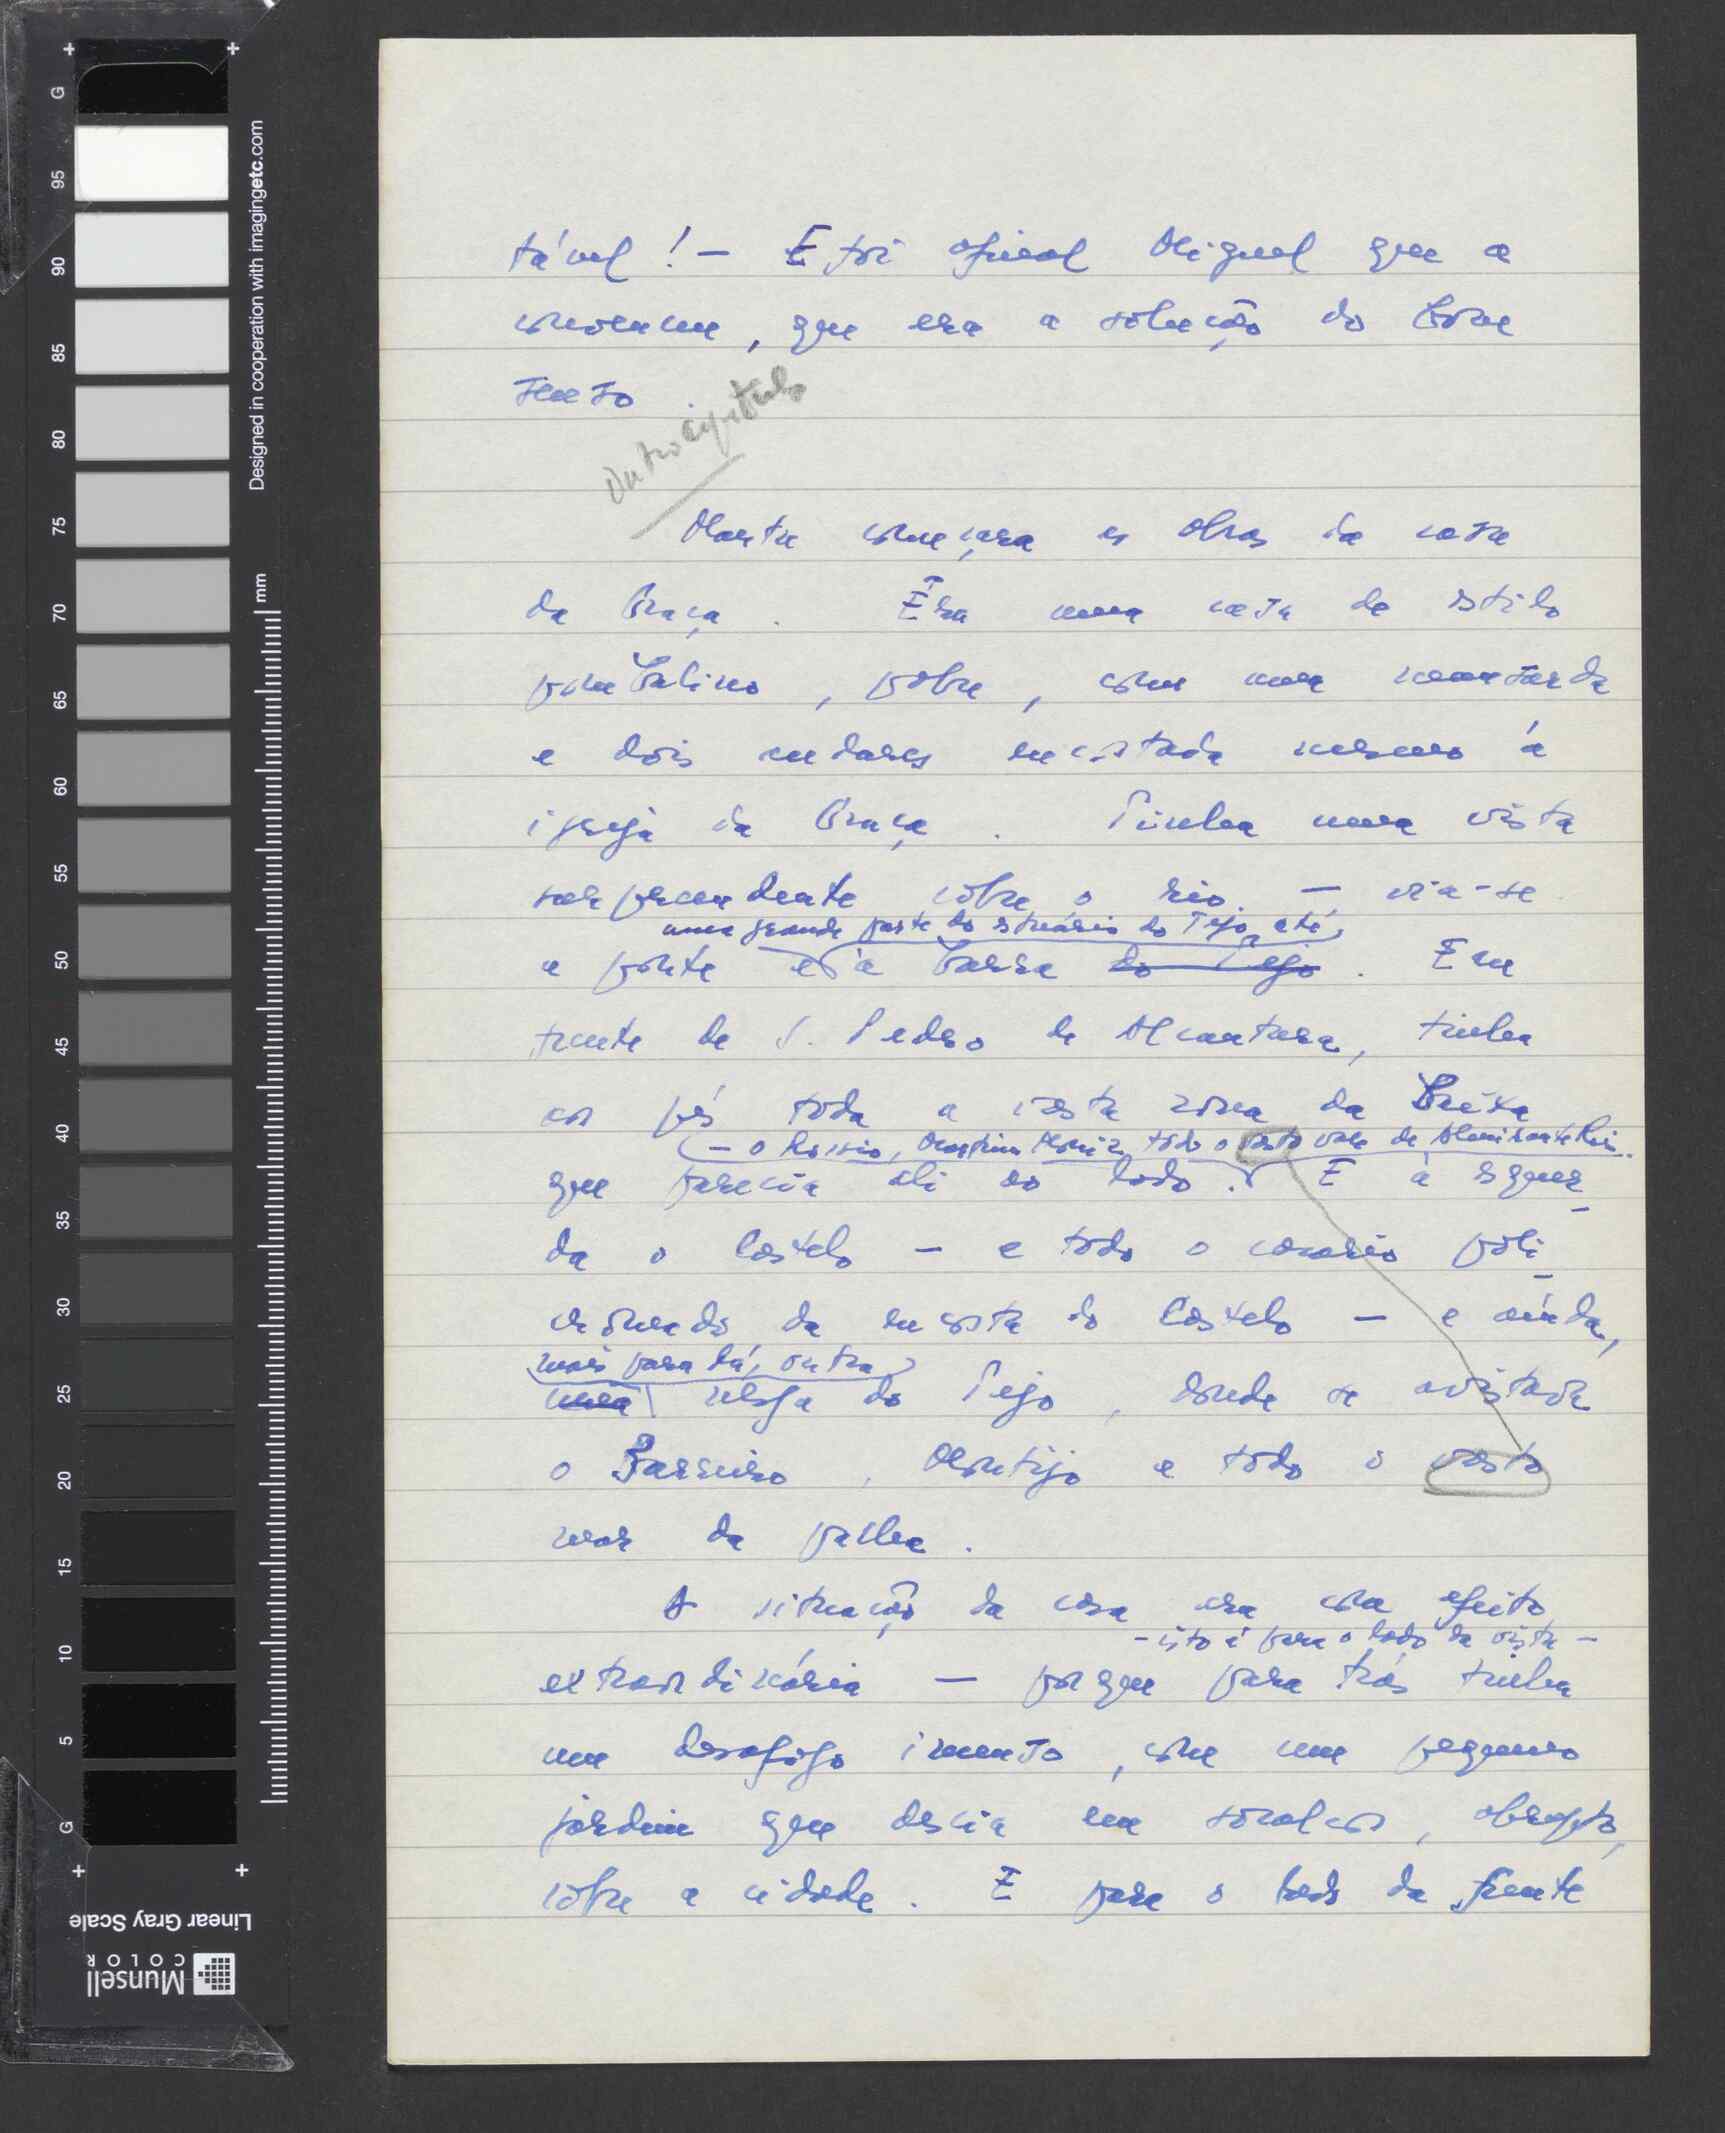 G
95
90
85
80
75
70
65
60
55
50
45
40
35
30
25
20
15
10
5
G
Designed in cooperation with imagingetc.com
mm
Linear Gray Scale
Munsell
COLOR
tável! — E foi afinal Miguel que a
convenceu, que era a solução do bom
senso.
Outro capítulo
Marta começara as obras da casa
da Graça. Era uma casa de estilo
pombalino, pobre, com uma mansarda
e dois andares encostada mesmo à
igreja da Graça. Tinha uma vista
surpreendente sobre o rio — via-se
uma grande parte do estuário do Tejo, até
a ponte e à barra do Tejo. Em
frente de S. Pedro de Alcantara, tinha
aos pés toda a vasta zona da Baixa
— o Rossio, Martim Moniz, todo o vasto vale da Almirante Reis.
que parecia ali ao lado. E à esquer-
da o Castelo — e todo o casario poli-
cromado da encosta do Castelo — e ainda,
mais para lá, outra
uma nesga do Tejo, donde se avistava
o Barreiro, Montijo e todo o vasto
mar da palha.
A situação da casa era com efeito
— isto é para o lado da vista —
extraordinária — porque para trás tinha
um desafogo imenso, com um pequeno
jardim que descia em socalcos, abrupto,
sobre a cidade. E para o lado da frente